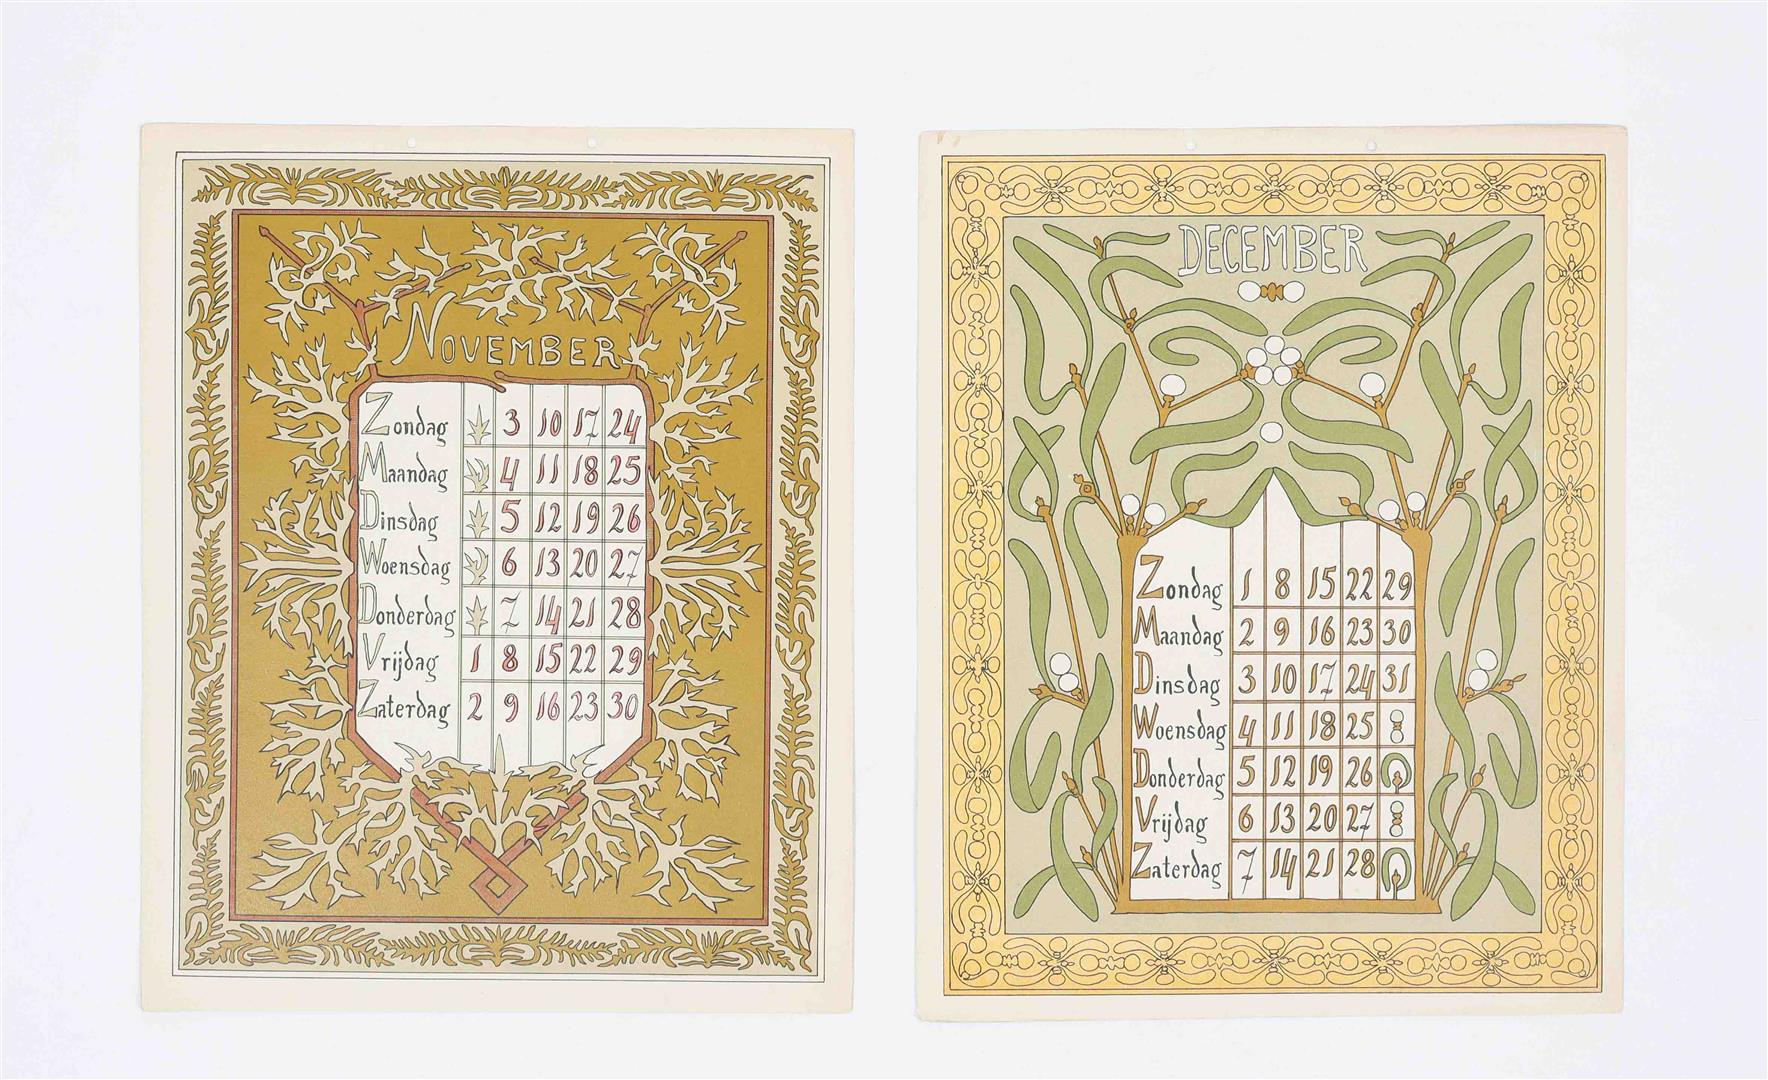 November
Zondag 3 10 17 24
Maandag 4 11 18 25
Dinsdag 5 12 19 26
Woensdag 6 13 20 27
Donderdag 7 14 21 28
Vrijdag 1 8 15 22 29
Zaterdag 2 9 16 23 30
DECEMBER
Zondag 1 8 15 22 29
Maandag 2 9 16 23 30
Dinsdag 3 10 17 24 31
Woensdag 4 11 18 25
Donderdag 5 12 19 26
Vrijdag 6 13 20 27
Zaterdag 7 14 21 28